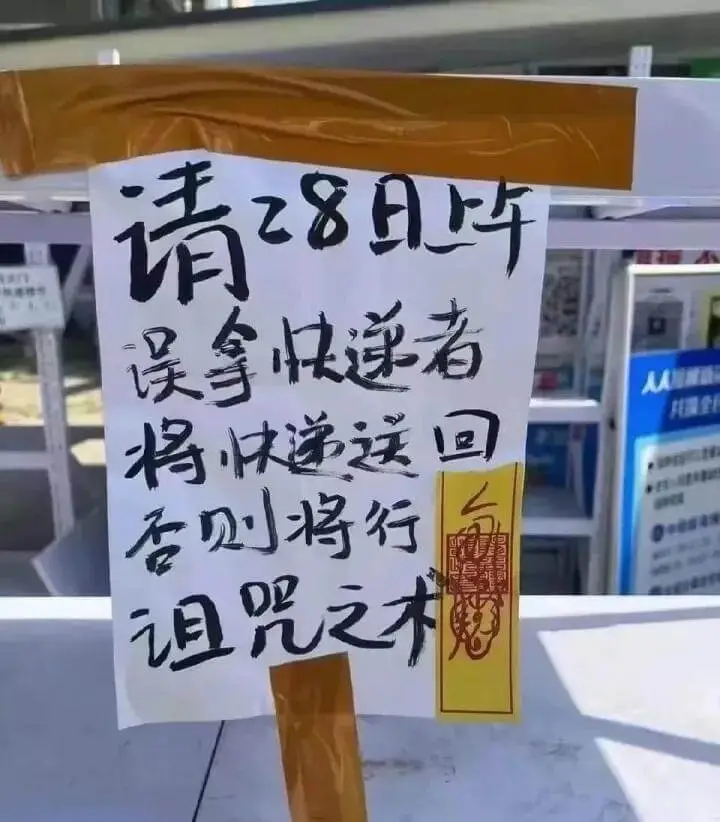 请28日上午
误拿快递者
将快递送回
否则将行
诅咒之术